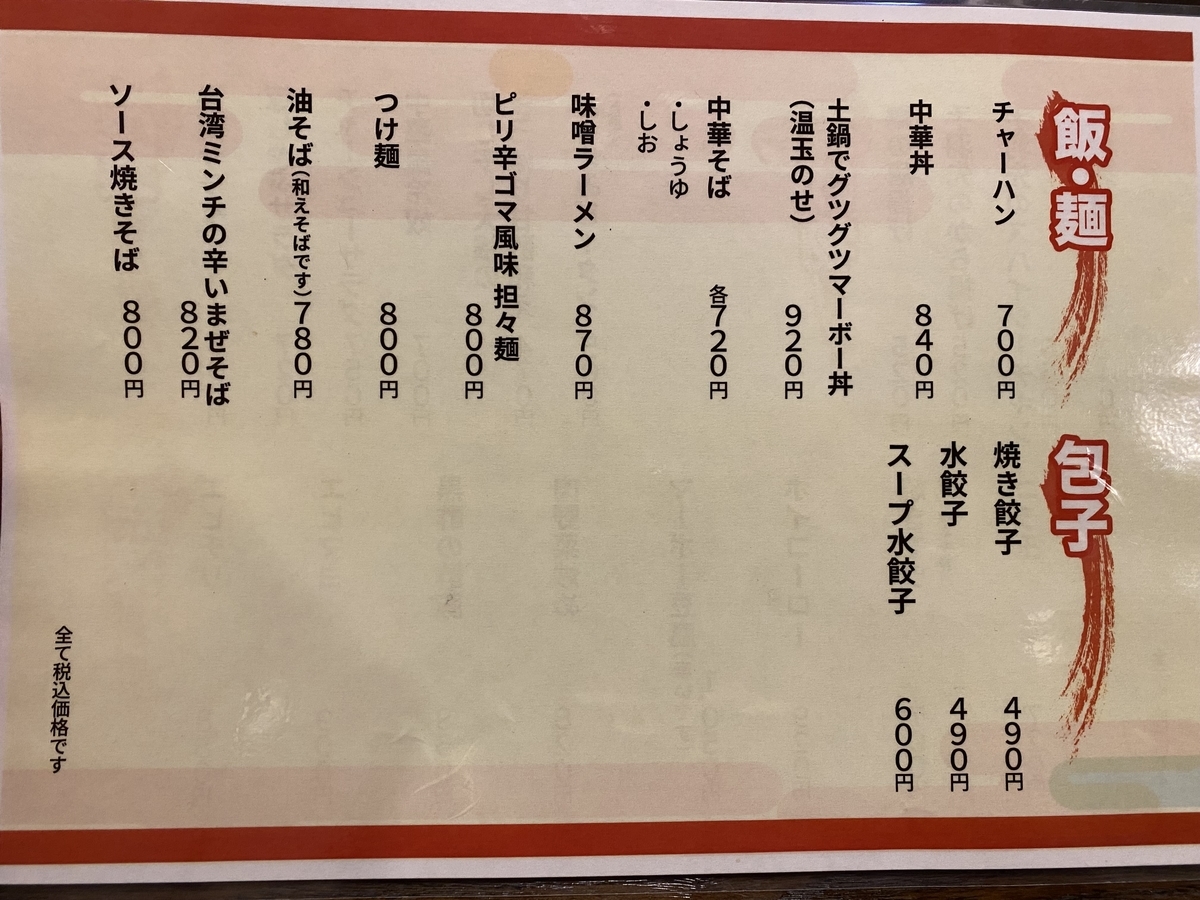 飯・麺
チャーハン
700円
中華丼
840円
土鍋でグツグツマーボー丼
（温玉のせ）
920円
中華そば
各720円
・しょうゆ
・しお
味噌ラーメン
870円
ピリ辛ゴマ風味 担々麺
800円
つけ麺
800円
油そば（和えそばです）780円
台湾ミンチの辛いまぜそば
820円
ソース焼きそば
800円
包子
焼き餃子
490円
水餃子
490円
スープ水餃子
600円
全て税込価格です